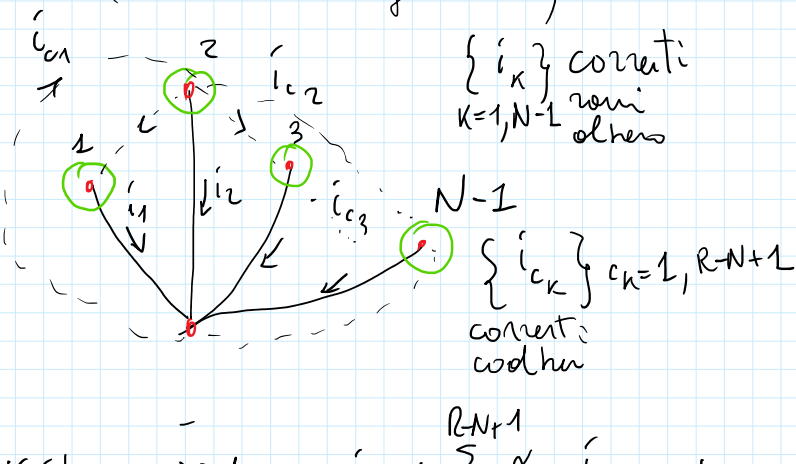 i_c1
2
i_c2
1
3
i_1
i_2
i_c3
N-1
{i_K} correnti
K=1,N-1 rami
albero
{i_cK} cK=1, R-N+1
correnti
coalbero
R-N+1